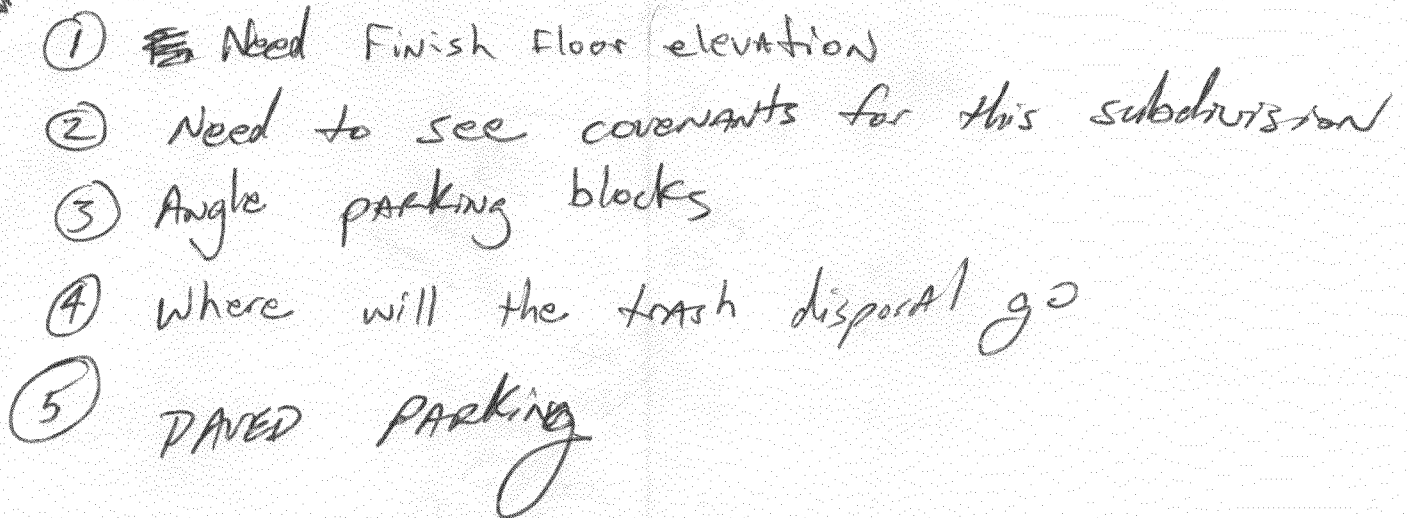 ① Need Finish Floor elevation
② Need to see covenants for this subdivision
③ Angle parking blocks
④ Where will the trash disposal go
⑤ PAVED PARKing